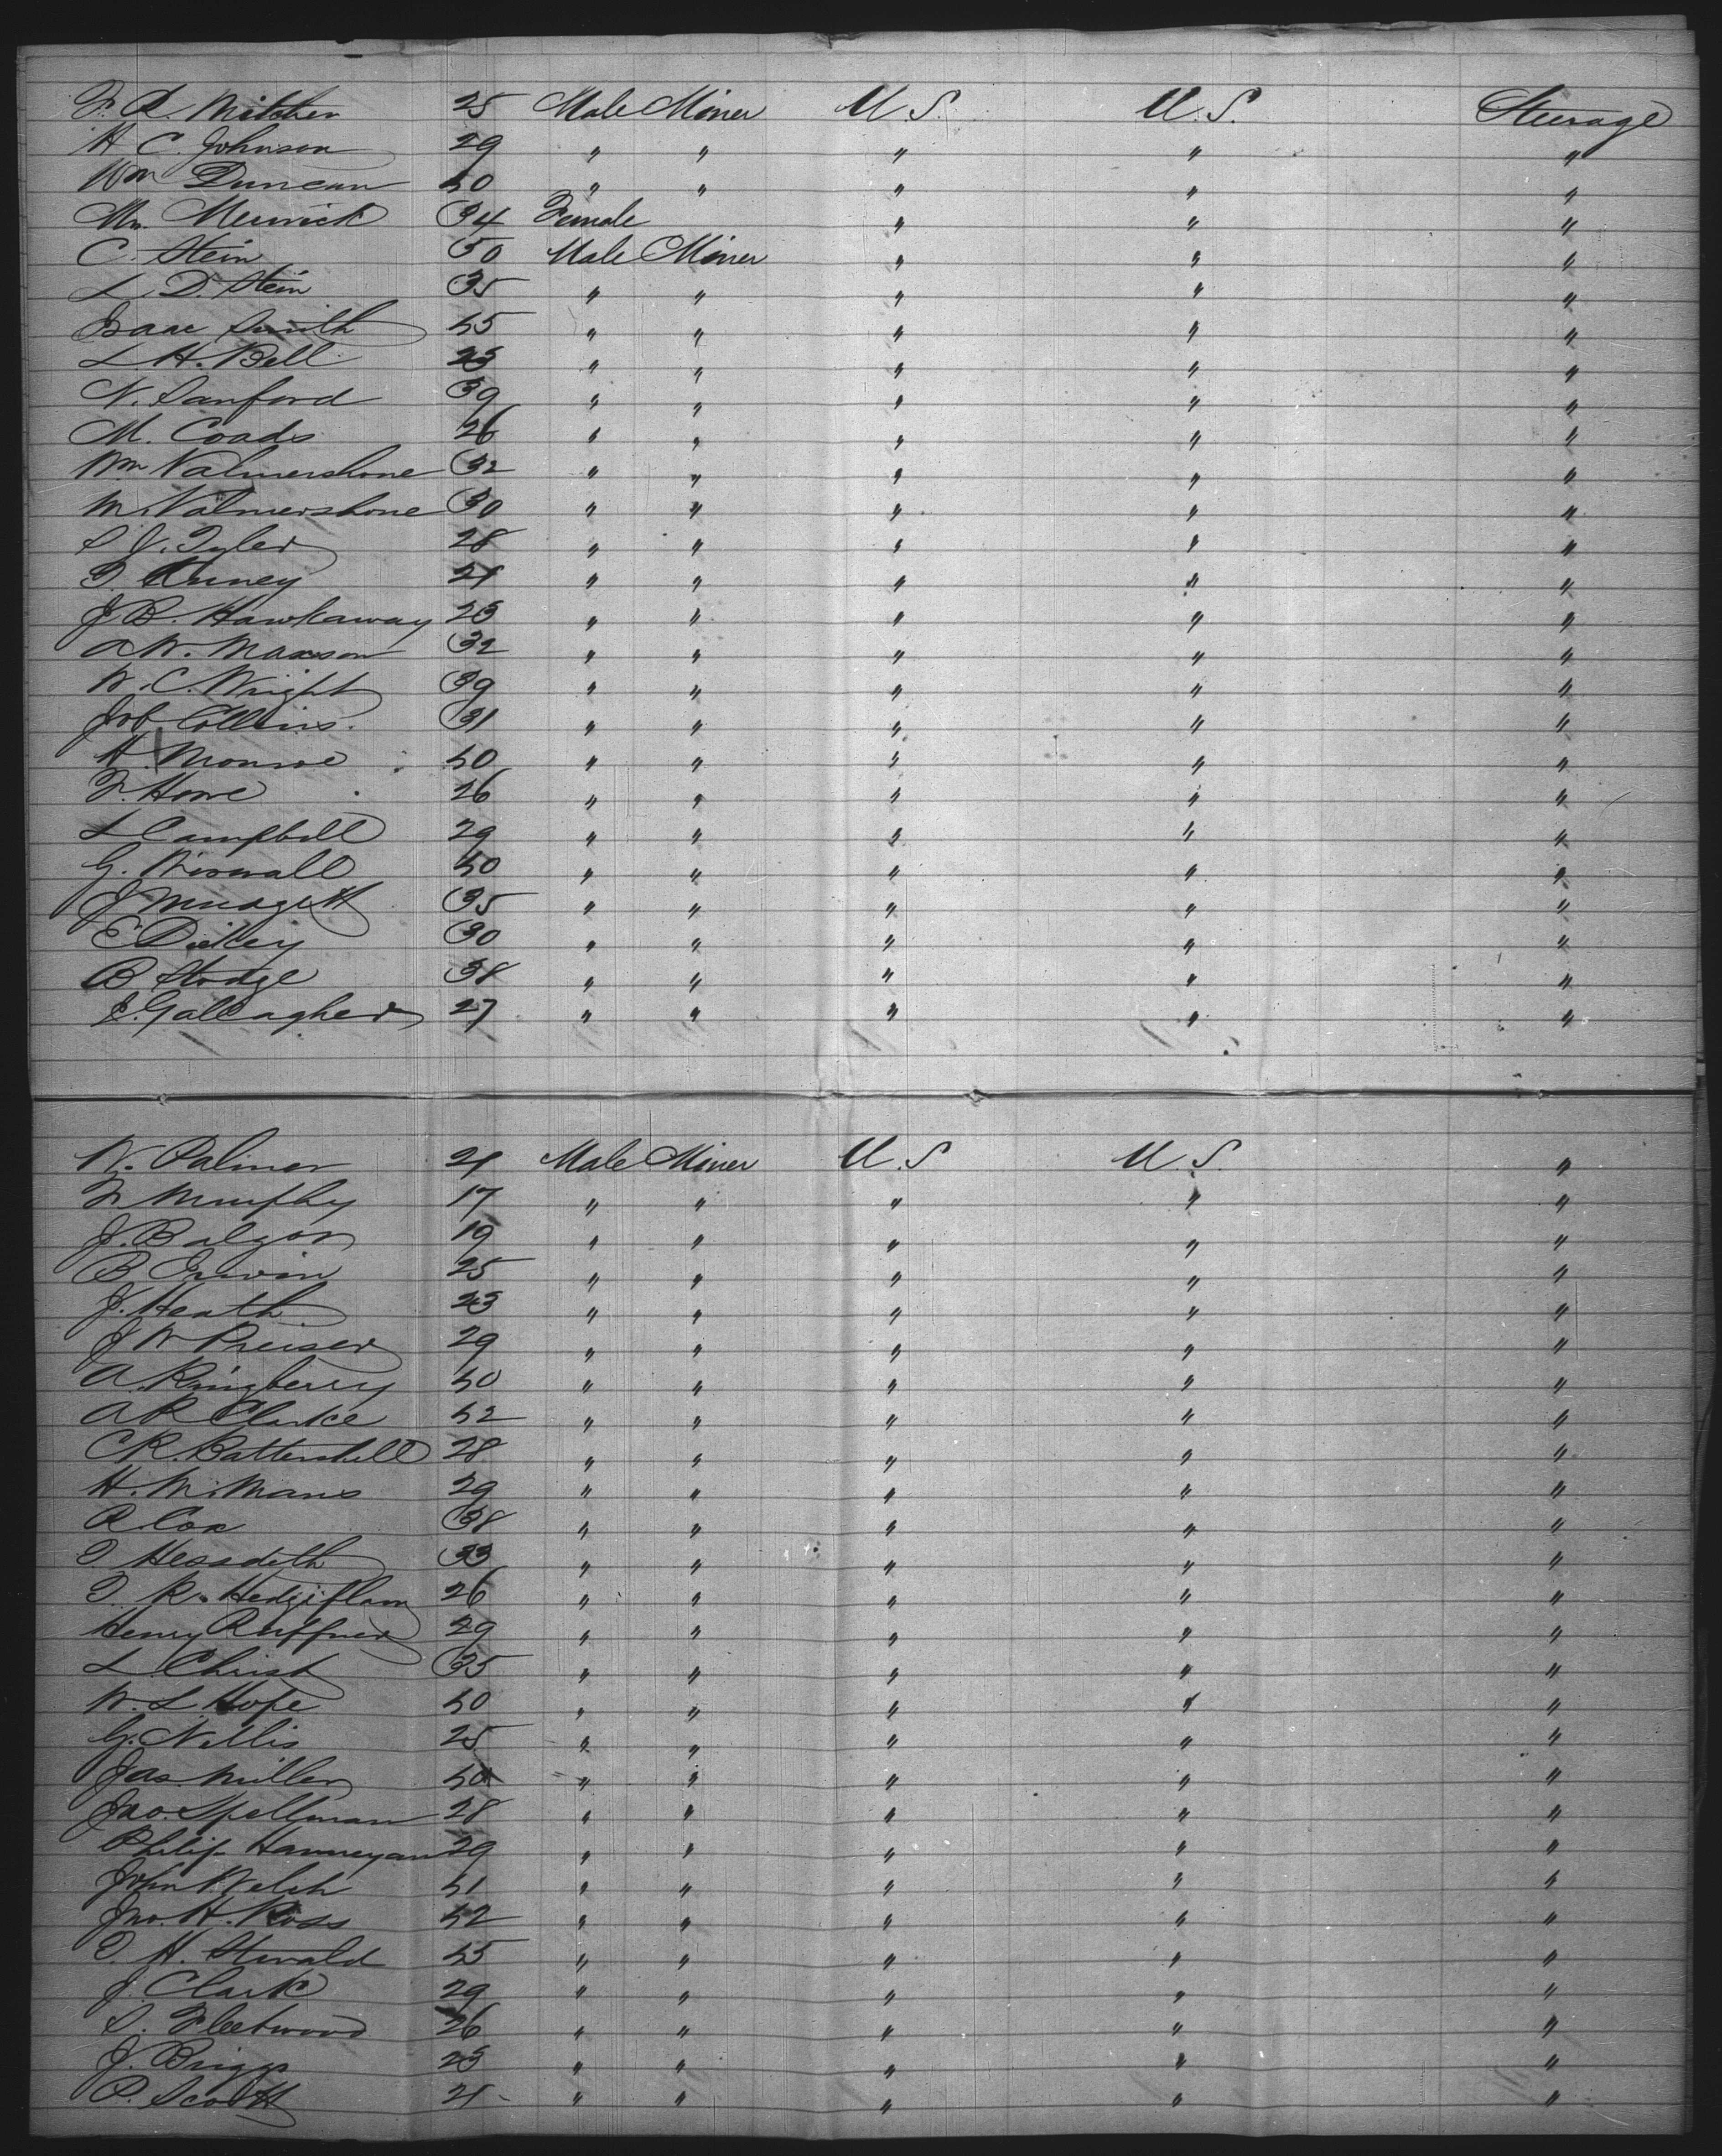 F. R. Mitcher 25 Male Miner U.S. U.S. Steerage
H C. Johnson 29 " " " " "
Wm Duncan 40 " " " " "
Merrick 34 Female " " "
C. Stein 50 Male Miner " " "
L. D. Stein 35 " " " " "
Isaac Smith 45 " " " " "
L H. Bell 23 " " " " "
N. Sanford 39 " " " " "
M. Coads 26 " " " " "
Wm Valmershone 32 " " " " "
M. Valmershone 30 " " " " "
S J. Tyler 28 " " " " "
T. 21 " " " " "
J B. Hawkaway 23 " " " " "
A W. Maxson 32 " " " " "
W. C. Wright 39 " " " " "
Job Collins 31 " " " " "
H. Monroe 40 " " " " "
F. Howe 26 " " " " "
L Campbell 29 " " " " "
G. Wiswall 40 " " " " "
J Mudgett 35 " " " " "
E Dickey 30 " " " " "
B Hodge 38 " " " " "
J. Gallagher 27 " " " " "
W. Palmer 21 Male Miner U.S U.S. "
F. Murphy 17 " " " " "
J. Balzor 19 " " " " "
B Erwin 25 " " " " "
J. Heath 23 " " " " "
J W Preiser 29 " " " " "
A. Ringberry 40 " " " " "
A R Clarke 42 " " " " "
C R. Battershell 28 " " " " "
H. M. Mans 29 " " " " "
R. Cox 38 " " " " "
T Hessdith 33 " " " " "
T. R. 26 " " " " "
Henry Ruffner 29 " " " " "
L. Christ 35 " " " " "
W. L. Hope 40 " " " " "
G. Nellis 25 " " " " "
Jas. Miller 40 " " " " "
Jno. Spellman 28 " " " " "
Philip Hanneyan 29 " " " " "
John Welch 41 " " " " "
Jno. H. Ross 42 " " " " "
T. H. Stewald 45 " " " " "
J. Clark 29 " " " " "
S. Fleetwood 26 " " " " "
J. Briggs 23 " " " " "
P. Scott 21 " " " " "